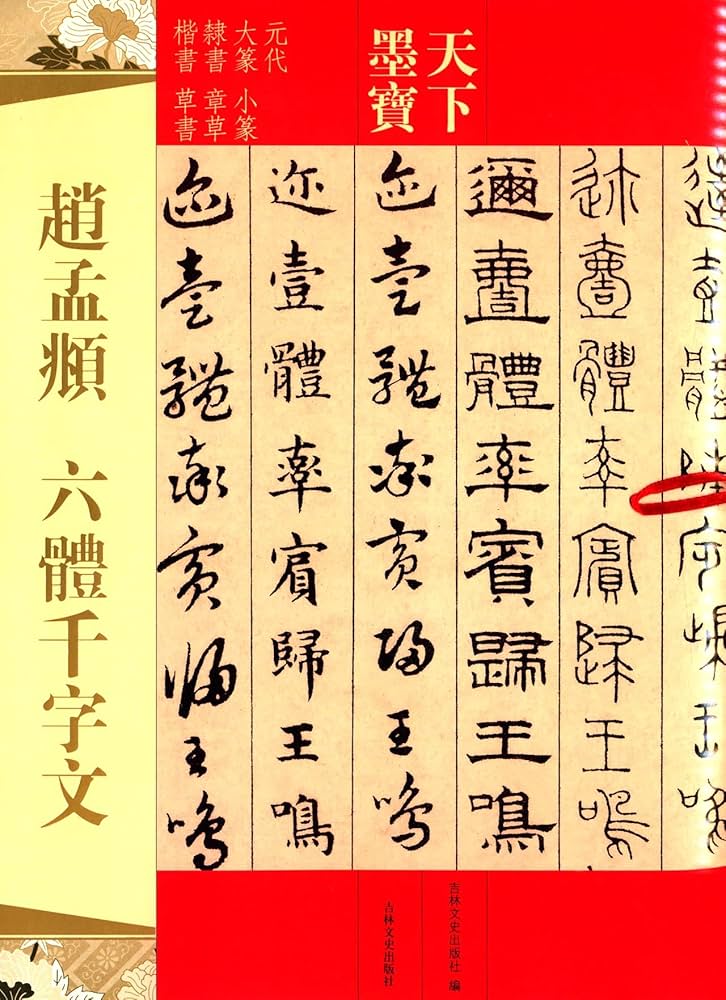 天下
墨寶
元代
大篆 小篆
隸書 章草
楷書 草書
趙孟頫 六體千字文
迩壹體率賓歸王鳴
邇壹體率賓歸王鳴
迩壹體率賓歸王鳴
迩壹體率賓歸王鳴
迩壹體率賓歸王鳴
吉林文史出版社 編
吉林文史出版社